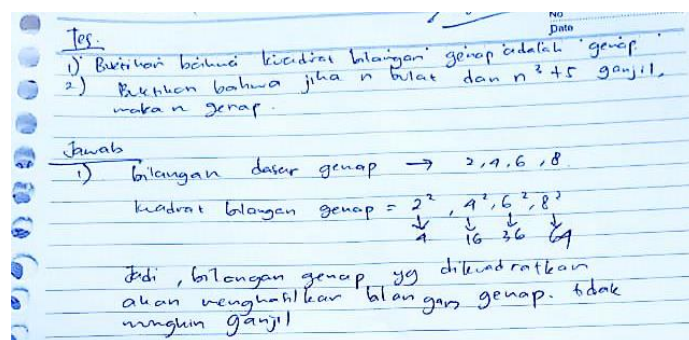 No
Date
Tes.
1) Buktikan bahwa kuadrat bilangan genap adalah genap.
2) Buktikan bahwa jika n bulat dan n³ + 5 ganjil,
maka n genap.
Jawab
1) bilangan dasar genap → 2, 4, 6, 8
kuadrat bilangan genap = 2², 4², 6², 8²
↓ ↓ ↓ ↓
4 16 36 64
Jadi, bilangan genap yg dikuadratkan
akan menghasilkan bilangan genap. tidak
mungkin ganjil